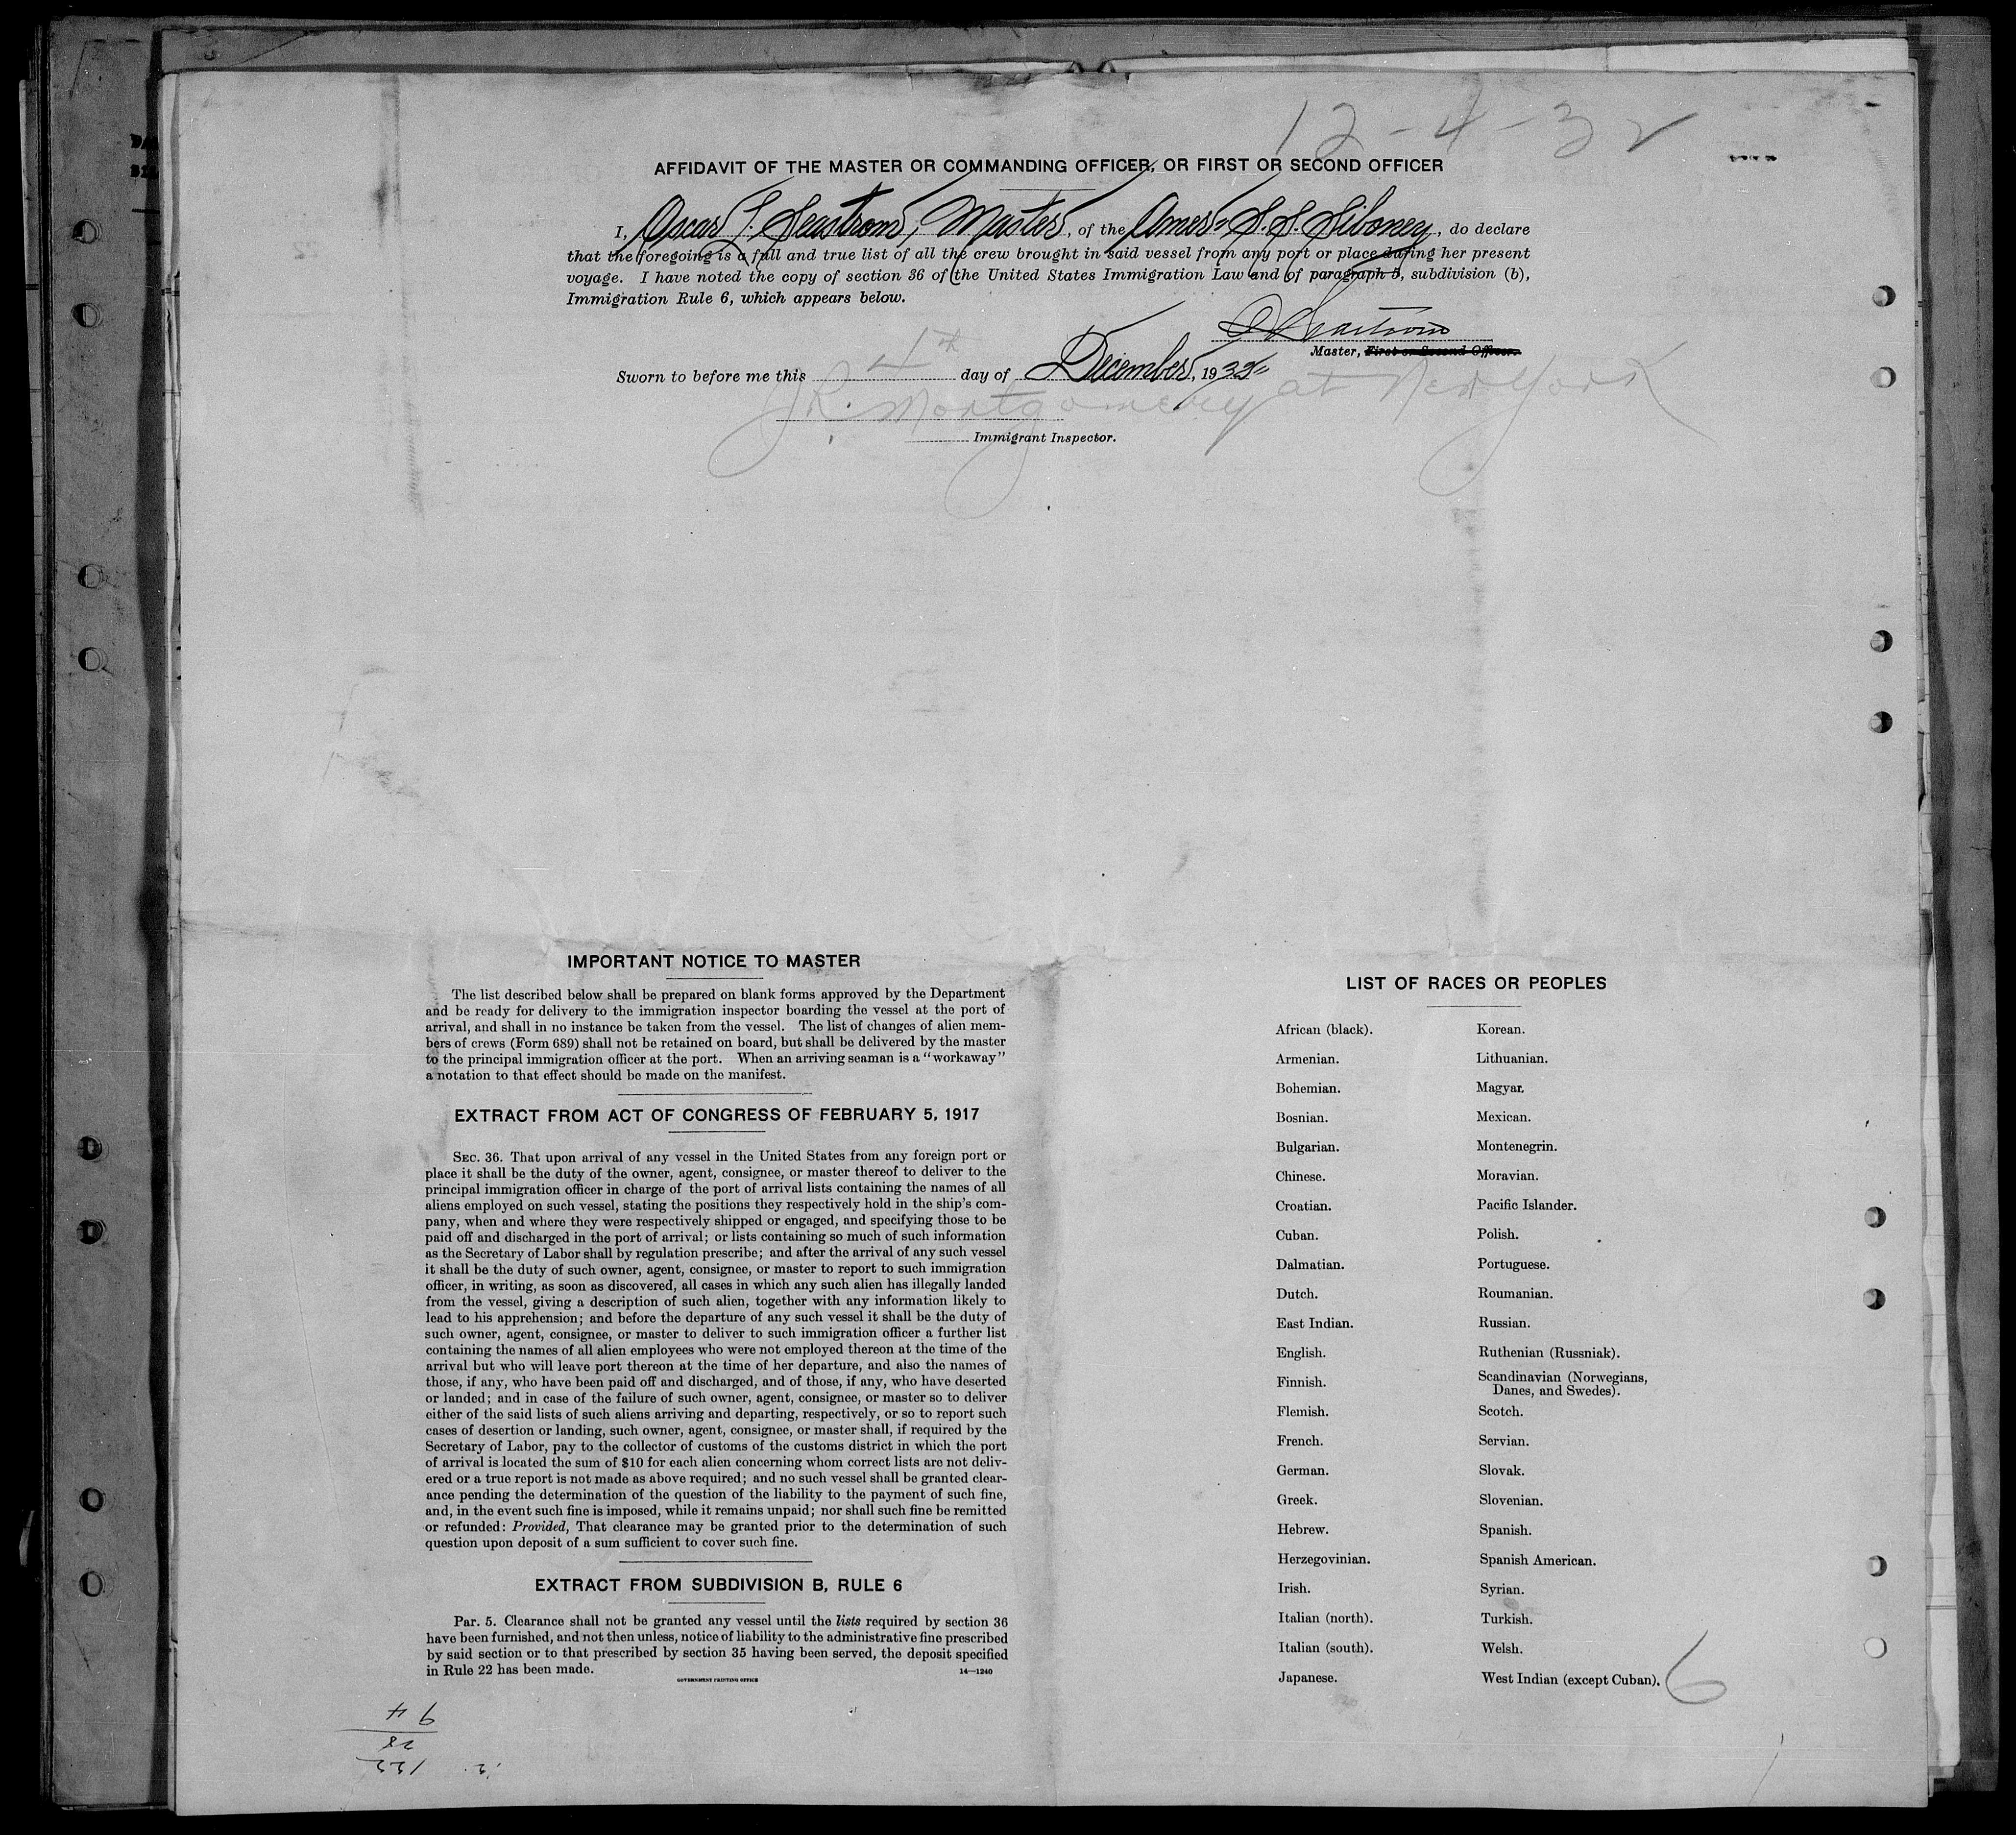 12-4-32
AFFIDAVIT OF THE MASTER OR COMMANDING OFFICER, OR FIRST OR SECOND OFFICER
I, Oscar J. Seastrom, Master, of the Amer. S.S. Siboney, do declare
that the foregoing is a full and true list of all the crew brought in said vessel from any port or place during her present
voyage. I have noted the copy of section 36 of the United States Immigration Law and of paragraph 5, subdivision (b),
Immigration Rule 6, which appears below.
Seastrom
Master, First or Second Officer.
Sworn to before me this 4th day of December, 1932
J.R. Montgomery at New York
Immigrant Inspector.
IMPORTANT NOTICE TO MASTER
The list described below shall be prepared on blank forms approved by the Department
and be ready for delivery to the immigration inspector boarding the vessel at the port of
arrival, and shall in no instance be taken from the vessel. The list of changes of alien mem-
bers of crews (Form 689) shall not be retained on board, but shall be delivered by the master
to the principal immigration officer at the port. When an arriving seaman is a "workaway"
a notation to that effect should be made on the manifest.
EXTRACT FROM ACT OF CONGRESS OF FEBRUARY 5, 1917
SEC. 36. That upon arrival of any vessel in the United States from any foreign port or
place it shall be the duty of the owner, agent, consignee, or master thereof to deliver to the
principal immigration officer in charge of the port of arrival lists containing the names of all
aliens employed on such vessel, stating the positions they respectively hold in the ship's com-
pany, when and where they were respectively shipped or engaged, and specifying those to be
paid off and discharged in the port of arrival; or lists containing so much of such information
as the Secretary of Labor shall by regulation prescribe; and after the arrival of any such vessel
it shall be the duty of such owner, agent, consignee, or master to report to such immigration
officer, in writing, as soon as discovered, all cases in which any such alien has illegally landed
from the vessel, giving a description of such alien, together with any information likely to
lead to his apprehension; and before the departure of any such vessel it shall be the duty of
such owner, agent, consignee, or master to deliver to such immigration officer a further list
containing the names of all alien employees who were not employed thereon at the time of the
arrival but who will leave port thereon at the time of her departure, and also the names of
those, if any, who have been paid off and discharged, and of those, if any, who have deserted
or landed; and in case of the failure of such owner, agent, consignee, or master so to deliver
either of the said lists of such aliens arriving and departing, respectively, or so to report such
cases of desertion or landing, such owner, agent, consignee, or master shall, if required by the
Secretary of Labor, pay to the collector of customs of the customs district in which the port
of arrival is located the sum of $10 for each alien concerning whom correct lists are not deliv-
ered or a true report is not made as above required; and no such vessel shall be granted clear-
ance pending the determination of the question of the liability to the payment of such fine,
and, in the event such fine is imposed, while it remains unpaid; nor shall such fine be remitted
or refunded: Provided, That clearance may be granted prior to the determination of such
question upon deposit of a sum sufficient to cover such fine.
EXTRACT FROM SUBDIVISION B, RULE 6
Par. 5. Clearance shall not be granted any vessel until the lists required by section 36
have been furnished, and not then unless, notice of liability to the administrative fine prescribed
by said section or to that prescribed by section 35 having been served, the deposit specified
in Rule 22 has been made. 14—1240
GOVERNMENT PRINTING OFFICE
94
28
122
LIST OF RACES OR PEOPLES
African (black).
Armenian.
Bohemian.
Bosnian.
Bulgarian.
Chinese.
Croatian.
Cuban.
Dalmatian.
Dutch.
East Indian.
English.
Finnish.
Flemish.
French.
German.
Greek.
Hebrew.
Herzegovinian.
Irish.
Italian (north).
Italian (south).
Japanese.
Korean.
Lithuanian.
Magyar.
Mexican.
Montenegrin.
Moravian.
Pacific Islander.
Polish.
Portuguese.
Roumanian.
Russian.
Ruthenian (Russniak).
Scandinavian (Norwegians,
Danes, and Swedes).
Scotch.
Servian.
Slovak.
Slovenian.
Spanish.
Spanish American.
Syrian.
Turkish.
Welsh.
West Indian (except Cuban).
6